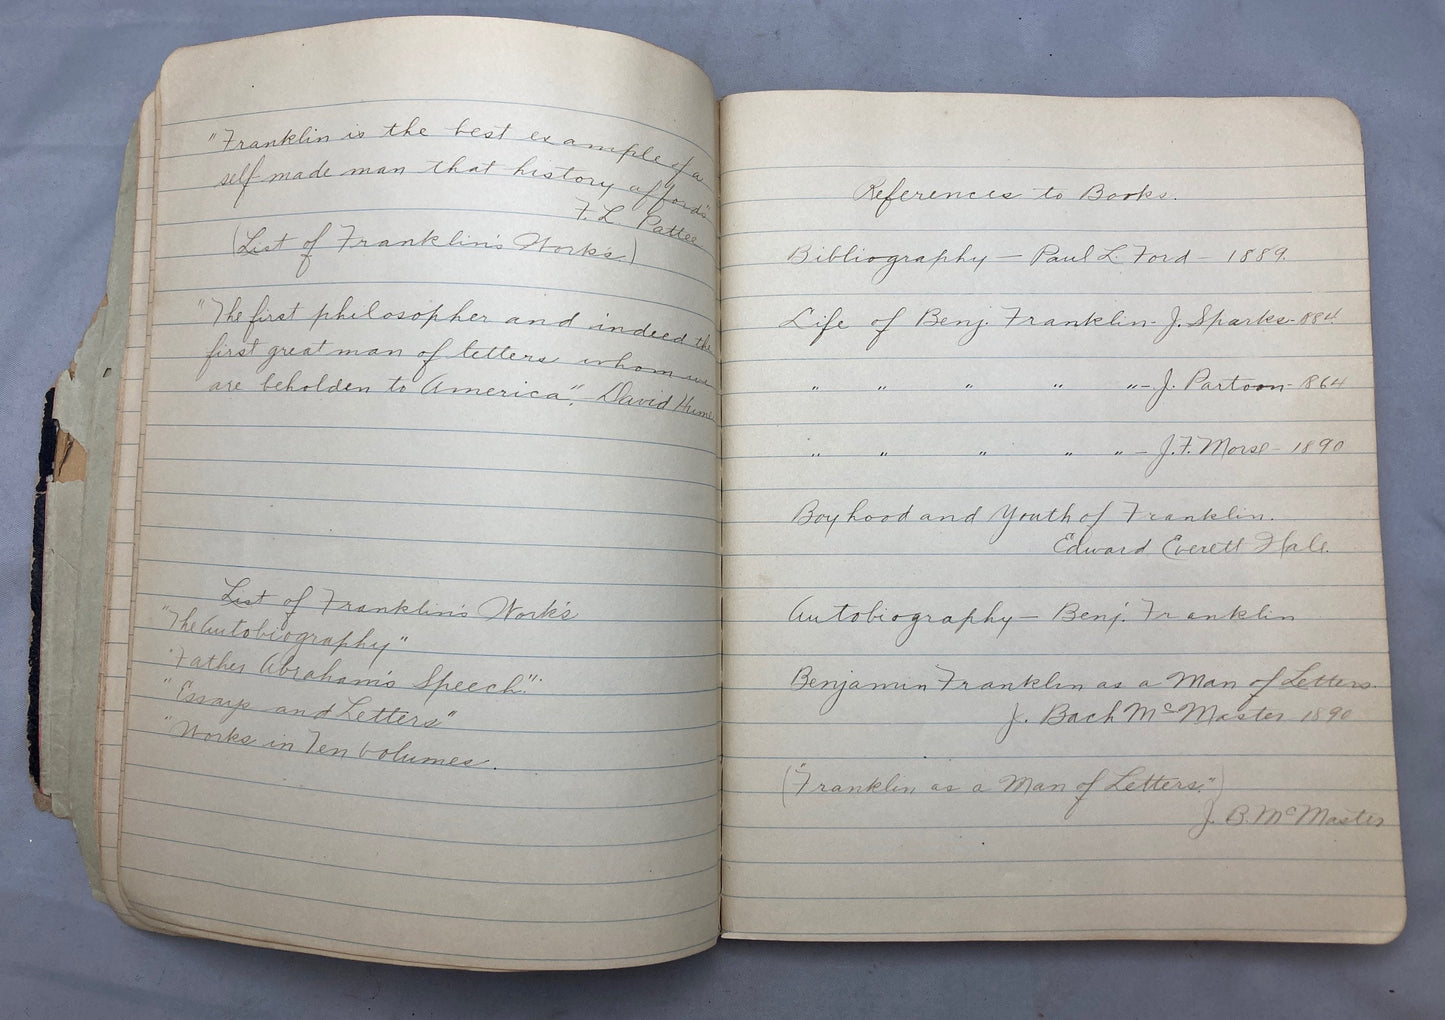 "Franklin is the best example of a
self-made man that history afford's
F. L. Pattee
(List of Franklin's Work's)
"The first philosopher and indeed the
first great man of letters whom we
are beholden to America", - David Hume
List of Franklin's Work's
"The Autobiography"
"Father Abraham's Speech".
"Essays and Letters"
"Works in Ten Volumes.
References to Books.
Bibliography - Paul L. Ford - 1889.
Life of Benj. Franklin - J. Sparks - 1884
" " " " " - J. Partoon - 1864
" " " " " - J. F. Morse - 1890
Boyhood and Youth of Franklin.
Edward Everett Hale.
Autobiography - Benj. Franklin
Benjamin Franklin as a Man of Letters.
J. Bach McMaster 1890
("Franklin as a Man of Letters.")
J. B. McMaster